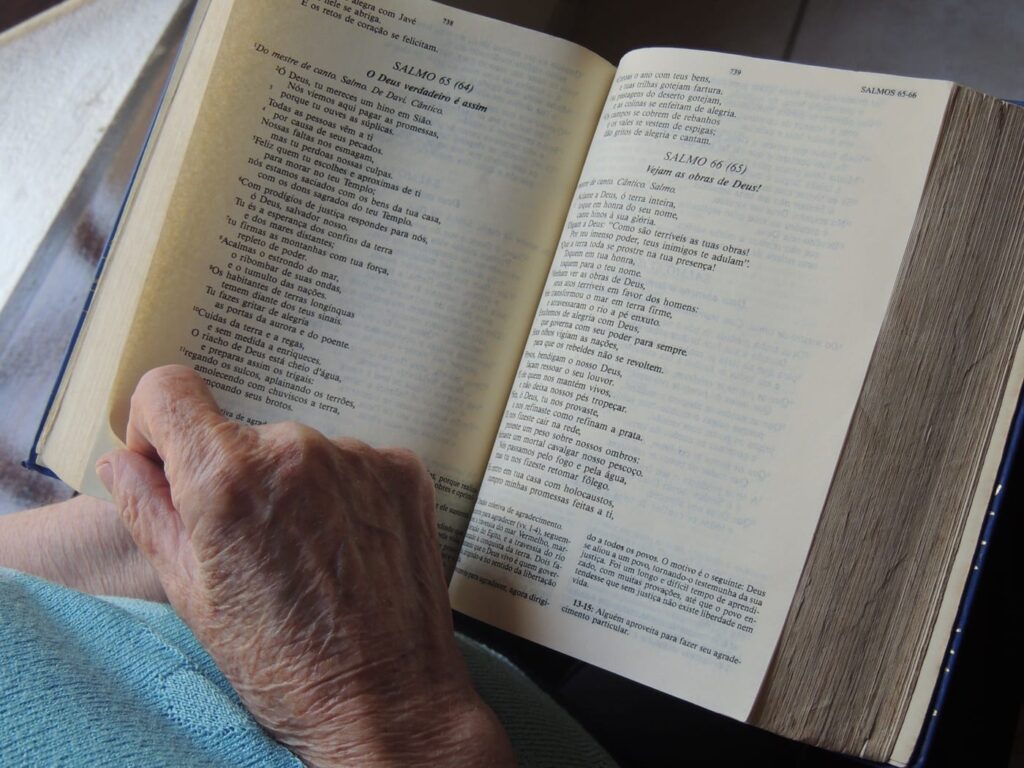 alegra com Javé
nele se abriga.
E os retos de coração se felicitam.
738
SALMO 65 (64)
O Deus verdadeiro é assim
¹Do mestre de canto. Salmo. De Davi. Cântico.
²Ó Deus, tu mereces um hino em Sião.
Nós viemos aqui pagar as promessas,
³porque tu ouves as súplicas.
Todas as pessoas vêm a ti
por causa de seus pecados.
Nossas faltas nos esmagam,
mas tu perdoas nossas culpas.
⁵Feliz quem tu escolhes e aproximas de ti
para morar no teu Templo;
nós estamos saciados com os bens da tua casa,
com os dons sagrados do teu Templo.
⁶Com prodígios de justiça respondes para nós,
ó Deus, salvador nosso.
Tu és a esperança dos confins da terra
e dos mares distantes;
⁷tu firmas as montanhas com tua força,
repleto de poder.
⁸Acalmas o estrondo do mar,
o ribombar de suas ondas,
e o tumulto das nações.
⁹Os habitantes de terras longínquas
temem diante dos teus sinais.
Tu fazes gritar de alegria
as portas da aurora e do poente.
¹⁰Cuidas da terra e a regas,
e sem medida a enriqueces.
O riacho de Deus está cheio d'água,
e preparas assim os trigais:
¹¹regando os sulcos, aplainando os terrões,
amolecendo com chuviscos a terra,
seus brotos.
739
SALMOS 65-66
o ano com teus bens,
e tuas trilhas gotejam fartura.
pastagens do deserto gotejam,
e as colinas se enfeitam de alegria.
campos se cobrem de rebanhos
e os vales se vestem de espigas;
dão gritos de alegria e cantam.
SALMO 66 (65)
Vejam as obras de Deus!
mestre de canto. Cântico. Salmo.
a Deus, ó terra inteira,
em honra do seu nome,
hinos à sua glória.
a Deus: "Como são terríveis as tuas obras!
Por teu imenso poder, teus inimigos te adulam".
Que a terra toda se prostre na tua presença!
Toquem em tua honra,
toquem para o teu nome.
ver as obras de Deus,
seus atos terríveis em favor dos homens:
transformou o mar em terra firme,
e atravessaram o rio a pé enxuto.
de alegria com Deus,
que governa com seu poder para sempre.
olhos vigiam as nações,
para que os rebeldes não se revoltem.
Povos, bendigam o nosso Deus,
façam ressoar o seu louvor.
É ele quem nos mantém vivos,
e não deixa nossos pés tropeçar.
ó Deus, tu nos provaste,
e nos refinaste como refinam a prata.
nos fizeste cair na rede,
um peso sobre nossos ombros:
um mortal cavalgar nosso pescoço.
Nós passamos pelo fogo e pela água,
mas tu nos fizeste retomar fôlego.
entro em tua casa com holocaustos,
cumpro minhas promessas feitas a ti,
coletiva de agradecimento.
para agradecer (vv. 1-4), seguem-
a travessia do mar Vermelho, mar-
do Egito, e a travessia do rio
à conquista da terra. Dois fa-
que o Deus vivo é quem gover-
sentido da libertação
para agradecer, agora dirigi-
do a todos os povos. O motivo é o seguinte: Deus
se aliou a um povo, tornando-o testemunha da sua
justiça. Foi um longo e difícil tempo de aprendi-
zado, com muitas provações, até que o povo en-
tendesse que sem justiça não existe liberdade nem
vida.
13-15: Alguém aproveita para fazer seu agrade-
cimento particular.